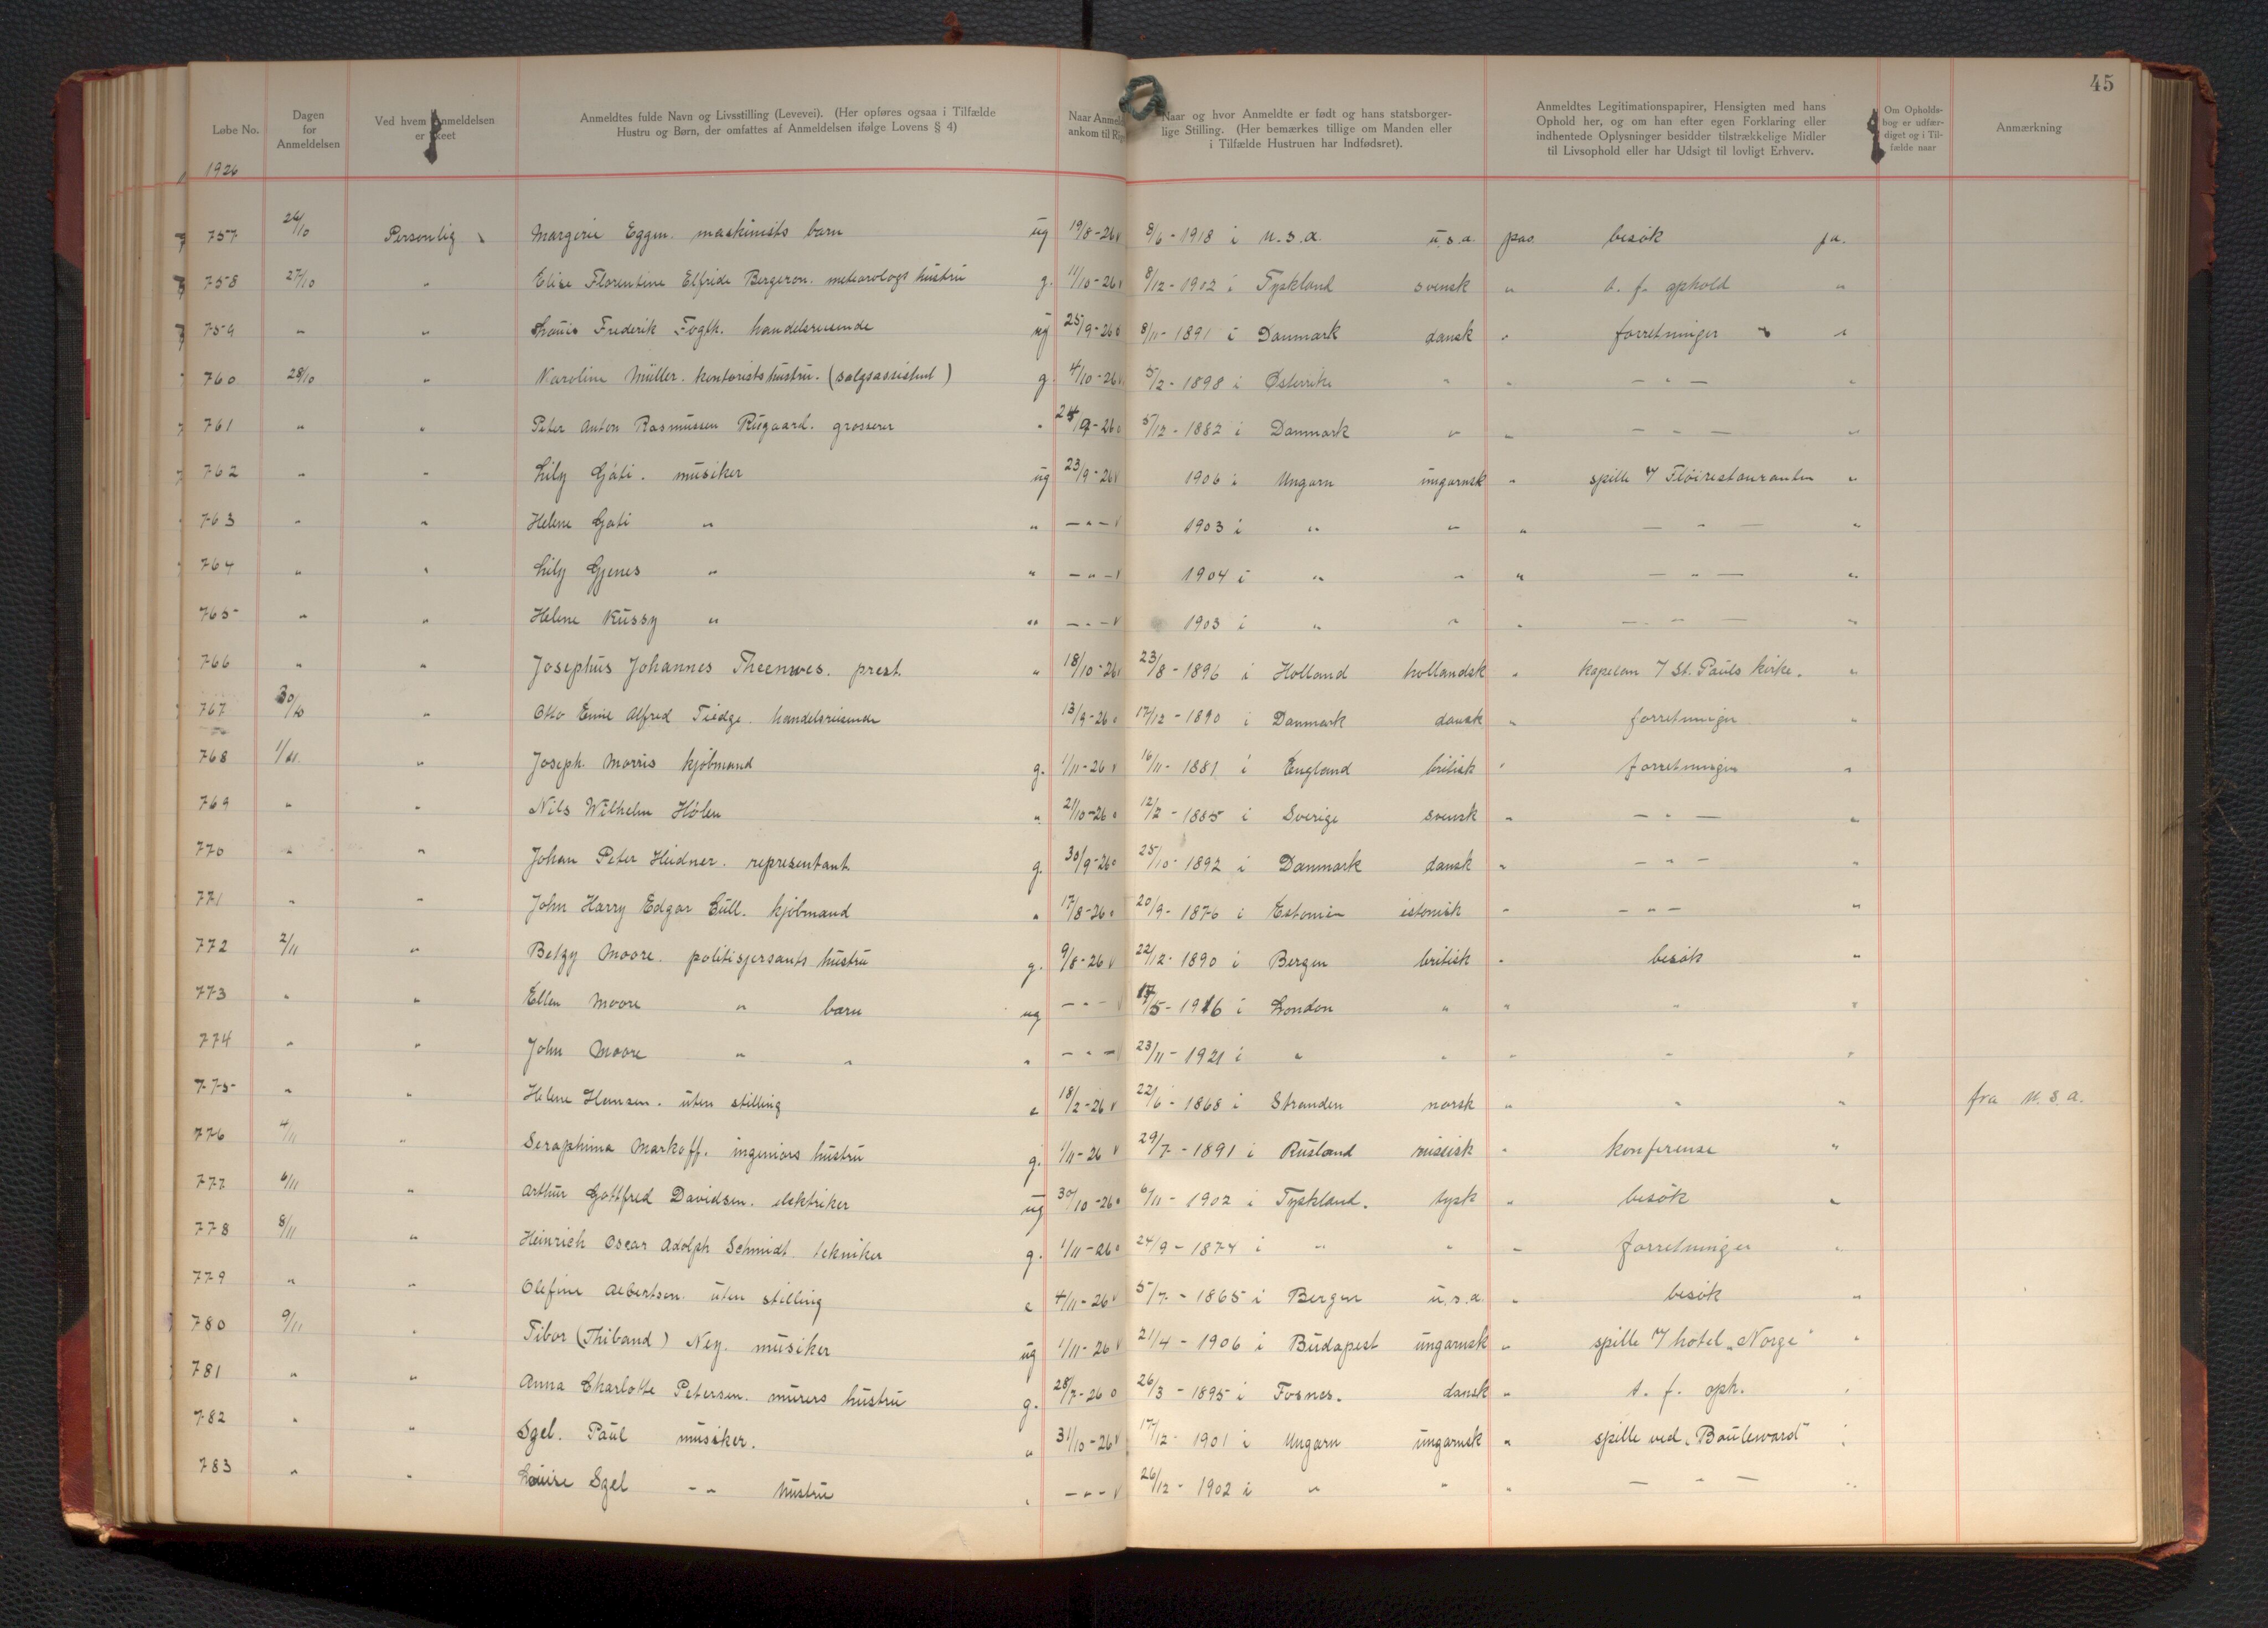 45
Løbe No.
Dagen for Anmeldelsen
Ved hvem Anmeldelsen er skeet
Anmeldtes fulde Navn og Livsstilling (Levevei). (Her opføres ogsaa i Tilfælde Hustru og Børn, der omfattes af Anmeldelsen ifølge Lovens § 4)
Naar Anmel ankom til Rig
Naar og hvor Anmeldte er født og hans statsborgerlige Stilling. (Her bemærkes tillige om Manden eller i Tilfælde Hustruen har Indfødsret).
Anmeldtes Legitimationspapirer, Hensigten med hans Ophold her, og om han efter egen Forklaring eller indhentede Oplysninger besidder tilstrækkelige Midler til Livsophold eller har Udsigt til lovligt Erhverv.
Om Opholdsbog er udfærdiget og i Tilfælde naar
Anmærkning
1926
757 26/10 Personlig Margerie Eggen. maskinists barn ug 19/8-26 v 8/6-1918 i U.S.A. u.s.a. pas besök ja.
758 27/10 " Elise Florentine Elfride Bergeron. meteorologs hustru g. 11/10-26 v 8/12-1902 i Tyskland svensk " t. f. ophold "
759 " " Louis Frederik Fogth. handelsreisende ug 25/9-26 o 8/11-1891 i Danmark dansk " forretninger "
760 28/10 " Karoline Müller. kontorists hustru. (salgsassistent) g. 4/10-26 v 5/2-1898 i Østerrike " " - " - "
761 " " Peter Anton Rasmussen Risgaard. grosserer " 24/9-26 o 5/12-1882 i Danmark " " - " - "
762 " " Lily Gáti. musiker ug 23/9-26 v 1906 i Ungarn ungarnsk " spille v/ Flöirestauranten "
763 " " Helene Gati " " - " - v 1903 i " " " - " - "
764 " " Lily Gjenes " " - " - v 1904 i " " " - " - "
765 " " Helene Kussy " " - " - v 1903 i " " " - " - "
766 " " Josephus Johannes Theenwes. prest. " 18/10-26 v 23/8-1896 i Holland hollandsk " kapelan v/ St. Pauls kirke. "
767 30/10 " Otto Emil Alfred Tiedge. handelsreisende 13/9-26 o 17/12-1890 i Danmark dansk " forretninger "
768 1/11. " Joseph. Morris kjöbmand g. 1/11-26 v 16/11-1881 i England britisk " forretninger "
769 " " Nils Wilhelm Hölen " 21/10-26 o 12/2-1885 i Sverige svensk " - " - "
770 " " Johan Peter Heidner. representant. g. 30/9-26 o 25/10-1892 i Danmark dansk " - " - "
771 " " John Harry Edgar Lull. kjöbmand " 17/8-26 o 20/9-1876 i Estonien estonisk " - " - "
772 2/11 " Betzy Moore. politisjersants hustru g. 9/8-26 v 22/12-1890 i Bergen britisk " besök "
773 " " Ellen Moore " barn ug - " - v 17/5-1916 i London " " " "
774 " " John Moore " " " - " - 23/11-1921 i " " " " "
775 " " Helene Hansen. uten stilling e 18/2-26 v 22/6-1868 i Stranden norsk " " " fra U.S.A.
776 4/11 " Seraphina Markoff. ingeniörs hustru g. 1/11-26 v 29/7-1891 i Rusland russisk " konferense "
777 6/11 " Arthur Gottfred Davidsen. elektriker ug 30/10-26 o 6/11-1902 i Tyskland. tysk " besök "
778 8/11 " Heinrich Oscar Adolph Schmidt. tekniker g. 1/11-26 o 24/9-1874 i " " " forretninger "
779 " " Olefine Albertsen. uten stilling e 4/11-26 v 5/7-1865 i Bergen u.s.a. " besök "
780 9/11 " Tibor (Thiband) Ney. musiker ug 1/11-26 v 21/4-1906 i Budapest ungarnsk " spille v/ hotel „Norge" "
781 " " Anna Charlotte Petersen. murers hustru g. 28/7-26 o 26/3-1895 i Fosnes. dansk " t. f. oph. "
782 " " Sgel. Paul musiker. " 31/10-26 v 17/12-1901 i Ungarn ungarnsk " spille ved „Boulevard" "
783 " " Louise Sgel - " hustru " - " - v 26/12-1902 i " " " - " - "